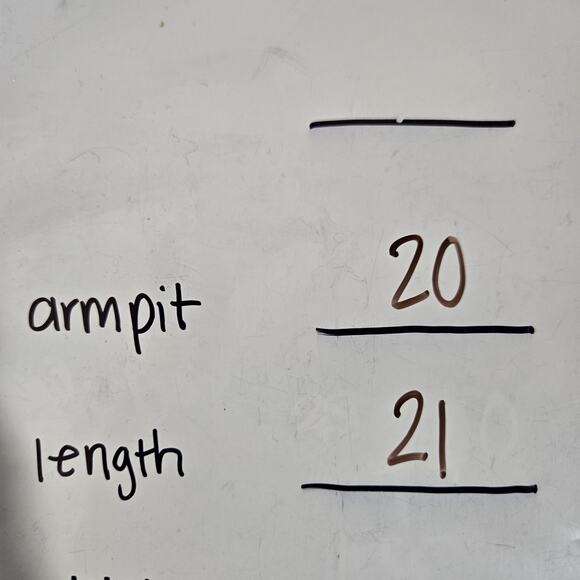 armpit 20
length 21